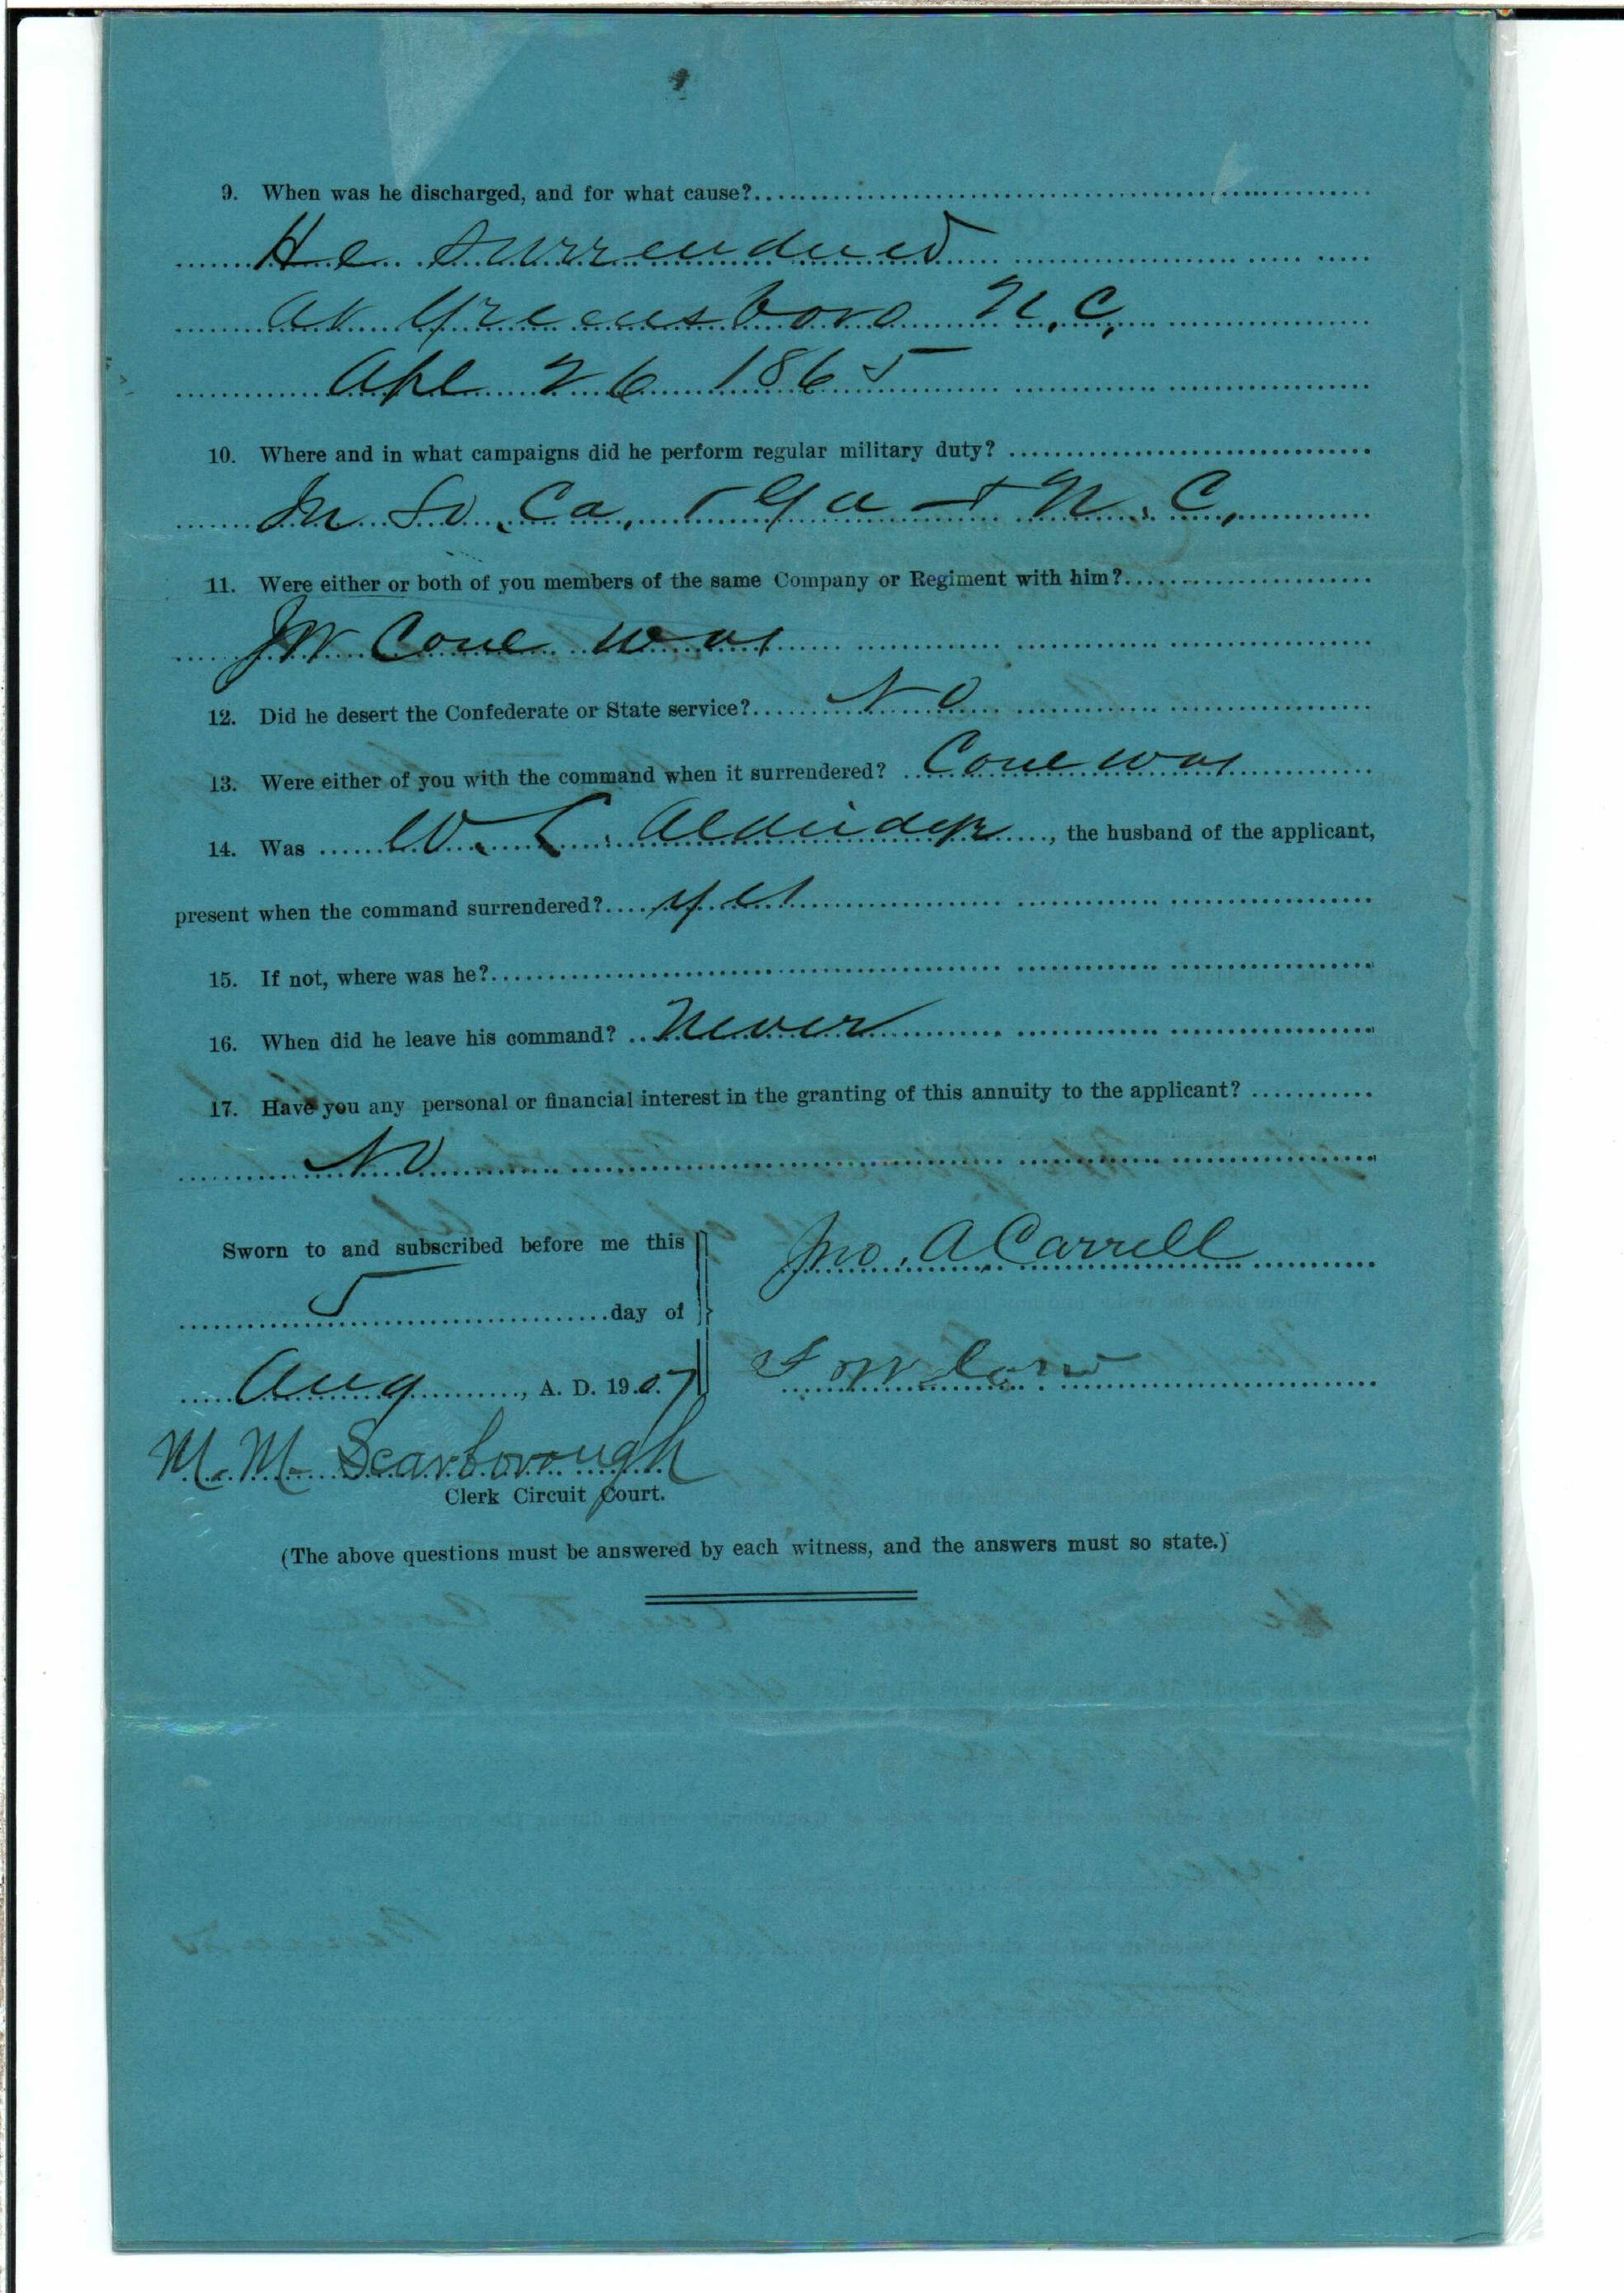 9. When was he discharged, and for what cause?
He surrendered
at Greensboro N.C.
Apl 26 1865
10. Where and in what campaigns did he perform regular military duty?
In So. Ca, Ga + N. C,
11. Were either or both of you members of the same Company or Regiment with him?
Cone was
12. Did he desert the Confederate or State service? No
13. Were either of you with the command when it surrendered? Cone was
14. Was W. L. , the husband of the applicant,
present when the command surrendered? yes
15. If not, where was he?
16. When did he leave his command? Never
17. Have you any personal or financial interest in the granting of this annuity to the applicant?
No
Sworn to and subscribed before me this
Jno. A Carrell
5 day of
Aug, A. D. 1907
M. M. Scarborough
Clerk Circuit Court.
(The above questions must be answered by each witness, and the answers must so state.)